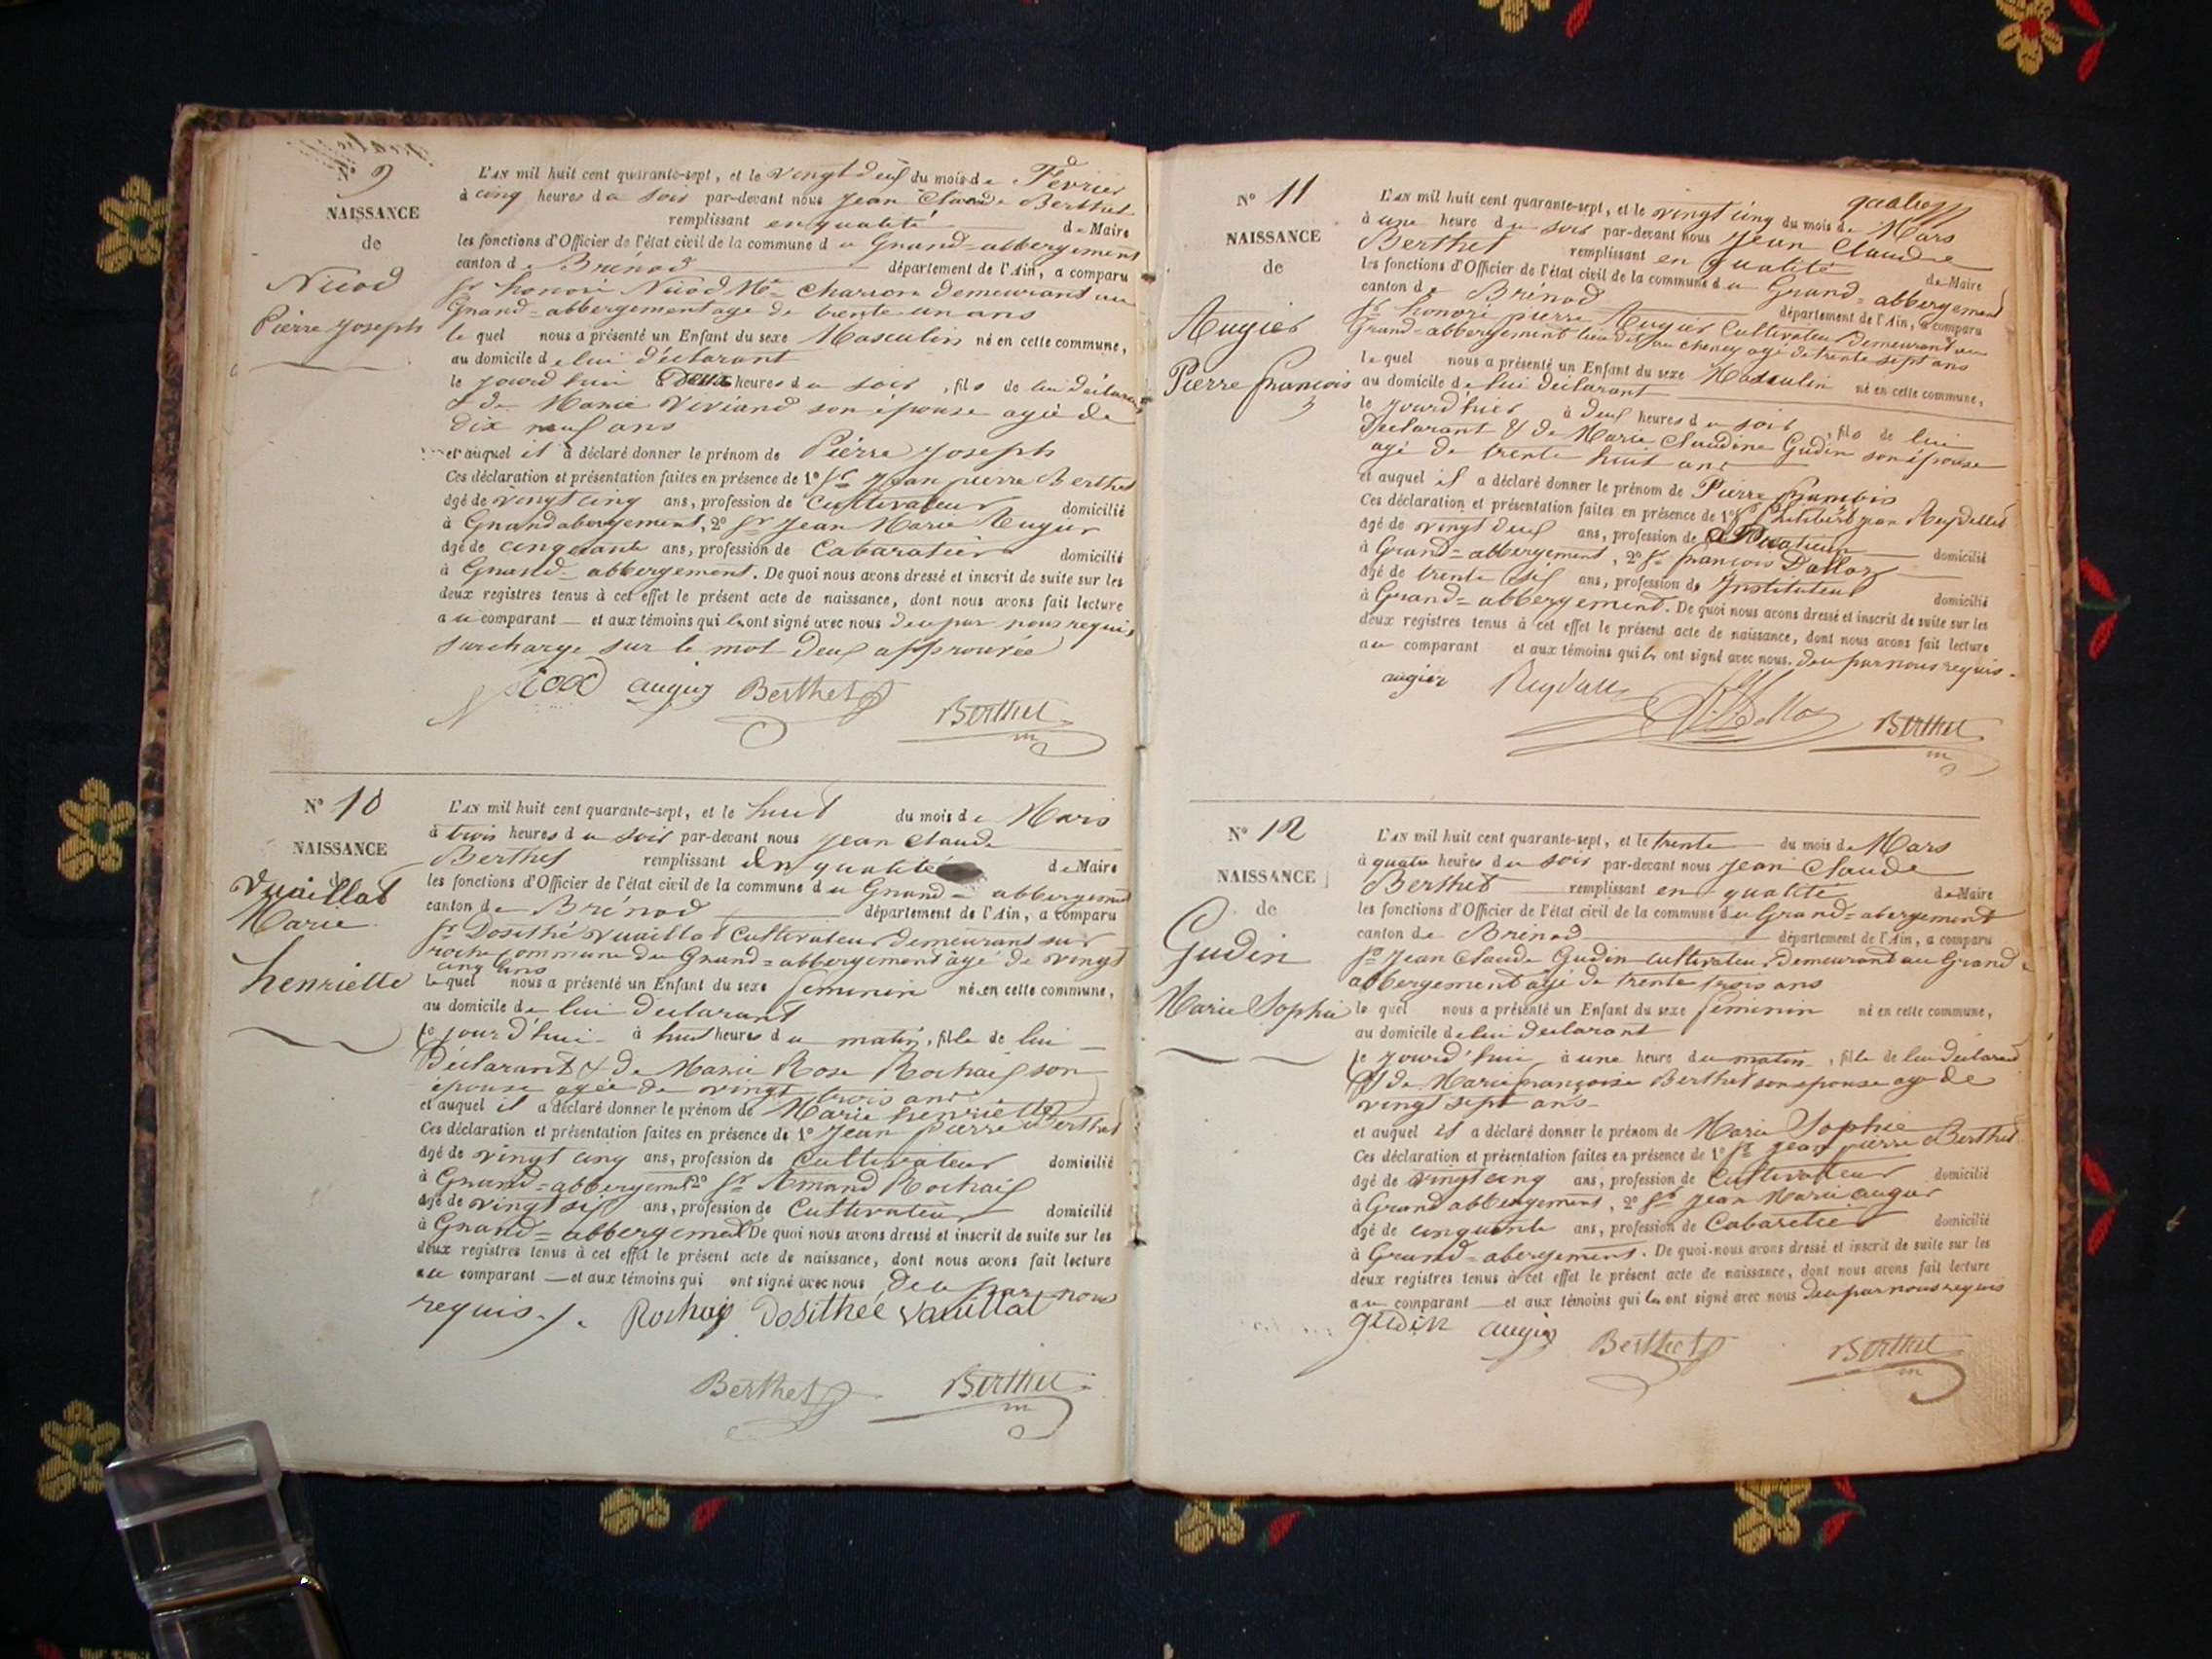 N° 9
NAISSANCE
de
Nicod
Pierre Joseph
L'AN mil huit cent quarante-sept, et le vingt deux du mois de Février
à cinq heures du soir par-devant nous Jean Claude Berthet
remplissant en qualité de Maire
les fonctions d'Officier de l'état civil de la commune du Grand=abbergement
canton de Brénod département de l'Ain, a comparu
Sr honoré Nicod Md Charron demeurant au
Grand=abbergement age de trente un ans
le quel nous a présenté un Enfant du sexe Masculin né en cette commune,
au domicile de lui déclarant
le jourd'hui Deux heures du soir, fils de lui déclarant
& de Marie Viviand son épouse agée de
dix neuf ans
et auquel il a déclaré donner le prénom de Pierre Joseph
Ces déclaration et présentation faites en présence de 1° Sr Jean pierre Berthet
âgé de vingt cinq ans, profession de Cultivateur domicilié
à Grand abergement, 2° Sr Jean Marie Augier
âgé de cinquante ans, profession de Cabaratier domicilié
à Grand=abbergement. De quoi nous avons dressé et inscrit de suite sur les
deux registres tenus à cet effet le présent acte de naissance, dont nous avons fait lecture
au comparant et aux témoins qui ont signé avec nous de ce par nous requis
surcharge sur le mot deux approuvée
Nicod augier Berthet
Berthet
m
N° 10
NAISSANCE
de
Vuaillat
Marie
henriette
L'AN mil huit cent quarante-sept, et le huit du mois de Mars
à trois heures du soir par-devant nous Jean Claude
Berthet remplissant en qualité de Maire
les fonctions d'Officier de l'état civil de la commune du Grand=abbergement
canton de Brénod département de l'Ain, a comparu
Sr Dosithé Vuaillat Cultivateur demeurant sur
roche commune du Grand=abbergement âgé de vingt
cinq ans
le quel nous a présenté un Enfant du sexe feminin né en cette commune,
au domicile de lui déclarant
le jour d'hui à huit heures du matin, fille de lui
Declarant & de Marie Rose Rochaix son
épouse agée de vingt trois ans
et auquel il a déclaré donner le prénom de Marie henriette
Ces déclaration et présentation faites en présence de 1° Jean pierre Berthet
âgé de vingt cinq ans, profession de Cultivateur domicilié
à Grand=abbergement 2° Sr Amand Rochaix
âgé de vingt six ans, profession de Cultivateur domicilié
à Grand=abbergement De quoi nous avons dressé et inscrit de suite sur les
deux registres tenus à cet effet le présent acte de naissance, dont nous avons fait lecture
au comparant et aux témoins qui ont signé avec nous de ce par nous
requis. Rochaix Dosithée Vauillat
Berthet Berthet
m
N° 11
NAISSANCE
de
Augier
Pierre françois
L'AN mil huit cent quarante-sept, et le vingt cinq du mois de Mars
à une heure du soir par-devant nous Jean Claude
Berthet remplissant en qualité de Maire
les fonctions d'Officier de l'état civil de la commune du Grand=abbergement
canton de Brénod département de l'Ain, a comparu
Sr honoré pierre Augier Cultivateur demeurant au
Grand=abbergement lieu dit au cheney agé de trente sept ans
le quel nous a présenté un Enfant du sexe Masculin né en cette commune,
au domicile de lui declarant
le jourd'hier à deux heures du soir, fils de lui
Declarant & de Marie Claudine Gudin son épouse
agé de trente huit ans
et auquel il a déclaré donner le prénom de Pierre françois
Ces déclaration et présentation faites en présence de 1° Sr Philibert jean Reydellet
âgé de vingt deux ans, profession de domicilié
à Grand=abbergement, 2° Sr françois Dalloz
âgé de trente six ans, profession de Instituteur domicilié
à Grand=abbergement. De quoi nous avons dressé et inscrit de suite sur les
deux registres tenus à cet effet le présent acte de naissance, dont nous avons fait lecture
au comparant et aux témoins qui ont signé avec nous. de ce par nous requis.
augier Reydellet Dalloz Berthet
m
N° 12
NAISSANCE
de
Gudin
Marie Sophie
L'AN mil huit cent quarante-sept, et le trente du mois de Mars
à quatre heures du soir par-devant nous Jean Claude
Berthet remplissant en qualité de Maire
les fonctions d'Officier de l'état civil de la commune du Grand=abergement
canton de Brénod département de l'Ain, a comparu
Sr Jean Claude Gudin cultivateur demeurant au Grand=
abbergement agé de trente trois ans
le quel nous a présenté un Enfant du sexe feminin né en cette commune,
au domicile de lui declarant
le jourd'hui à une heure du matin, fille de lui declarant
& de Marie françoise Berthet son épouse age de
vingt sept ans
et auquel il a déclaré donner le prénom de Marie Sophie
Ces déclaration et présentation faites en présence de 1° Sr Jean pierre Berthet
âgé de vingt cinq ans, profession de Cultivateur domicilié
à Grand abbergement, 2° Sr Jean Marie augier
âgé de cinquante ans, profession de Cabaretier domicilié
à Grand=abergement. De quoi nous avons dressé et inscrit de suite sur les
deux registres tenus à cet effet le présent acte de naissance, dont nous avons fait lecture
au comparant et aux témoins qui ont signé avec nous de ce par nous requis
gudin augier Berthet Berthet
m